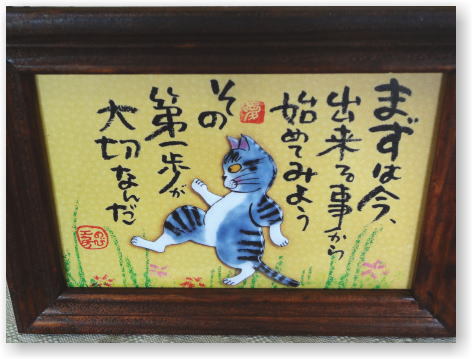 まずは今、
出来る事から
始めてみよう
夢
その
第一歩が
大切なんだ